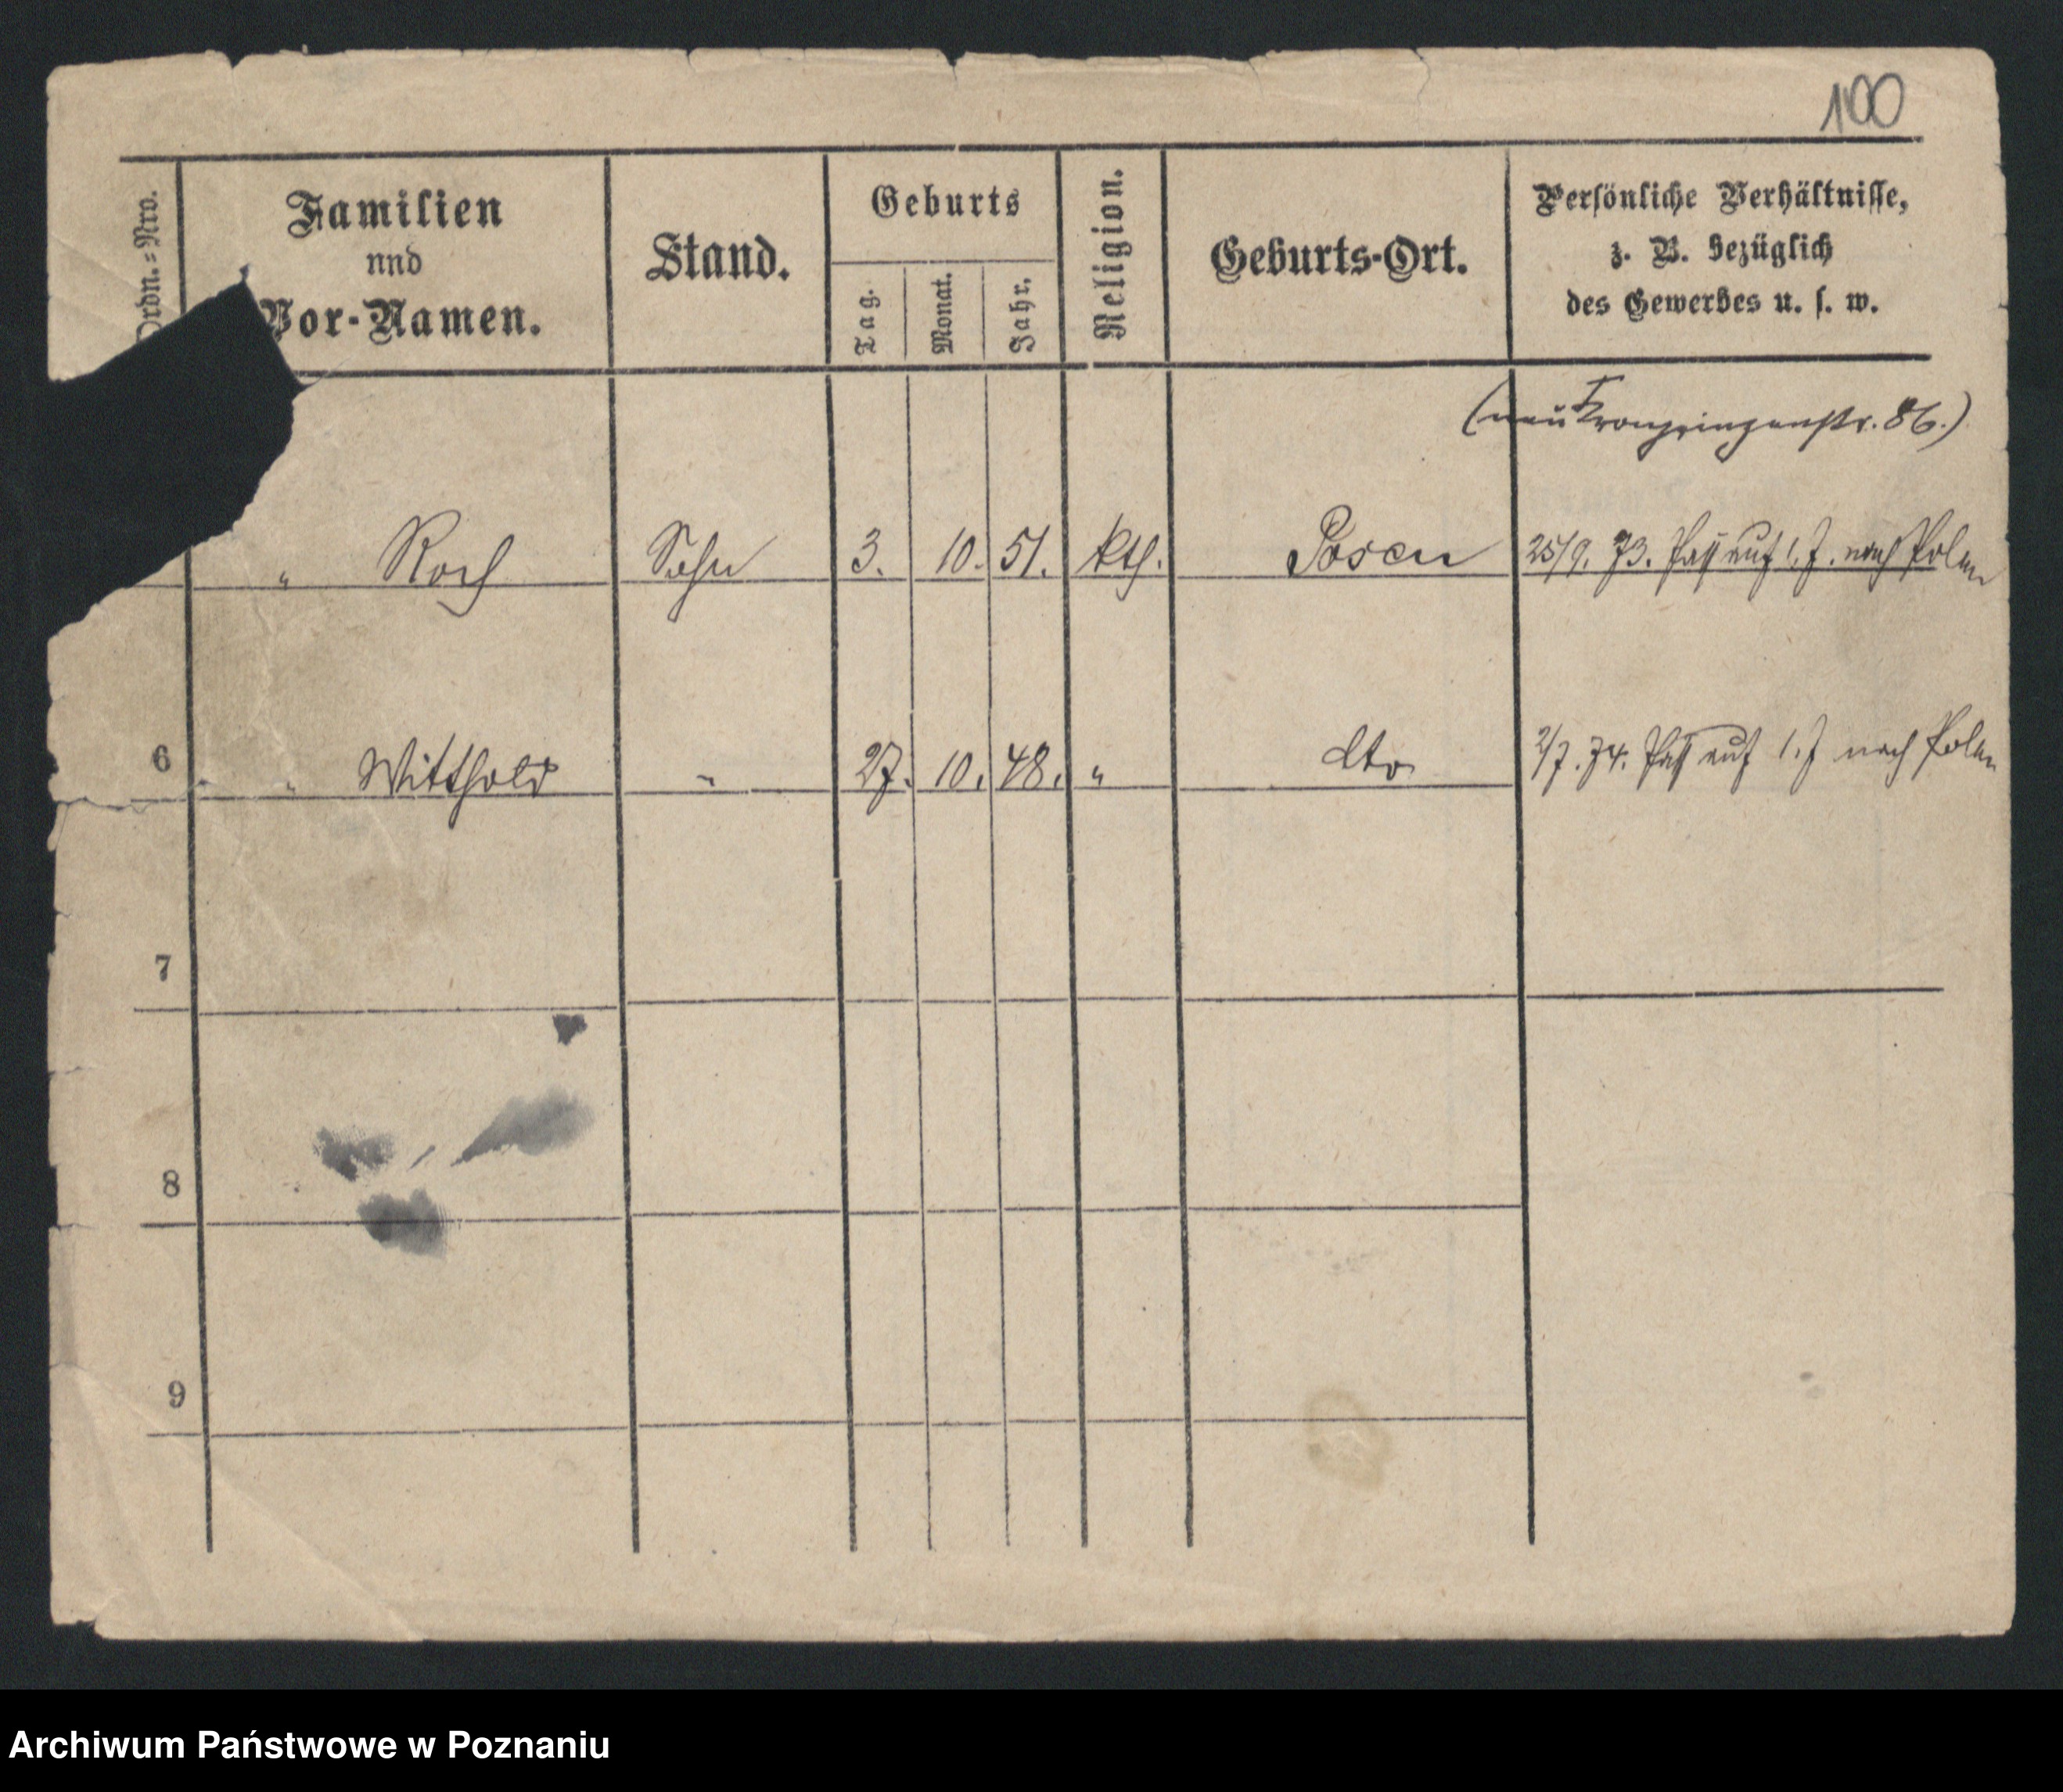 100
Ordn.=Nro.
Familien
nnd
Vor-Namen.
Stand.
Geburts
Tag.
Monat.
Jahr.
Religion.
Geburts-Ort.
Persönliche Verhältnisse,
z. B. bezüglich
des Gewerbes u. s. w.
(neu Kronprinzenstr. 86.)
" Roch Sohn 3. 10. 51. kth. Posen 25/9. 73. Paß auf 1. J. nach Polen
6 " Witthold " 27. 10. 48. " dto 2/7. 74. Paß auf 1. J nach Polen
7
8
9
Archiwum Państwowe w Poznaniu